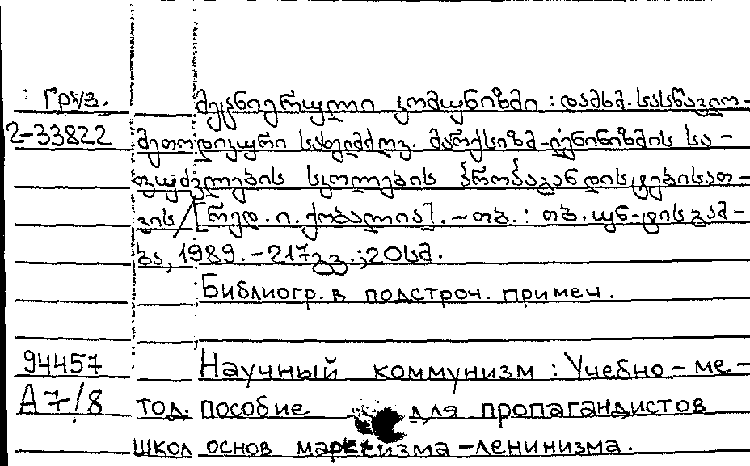 Груз. მეცნიერული კომუნიზმი : დამხმ. სასწავლო-
2-33822 მეთოდიკური სახელმძღვ. მარქსიზმ-ლენინიზმის სა-
ფუძვლების სკოლების პროპაგანდისტებისათ-
ვის / [რედ. ი. ქობალია]. – თბ. : თბ. უნ-ტის გამ-
ცა, 1989. – 217 გვ. ; 20 სმ.
Библиогр. в подстроч. примеч.
94457 Научный коммунизм : Учебно-ме-
А7/8 тод. пособие для пропагандистов
школ основ марксизма-ленинизма.